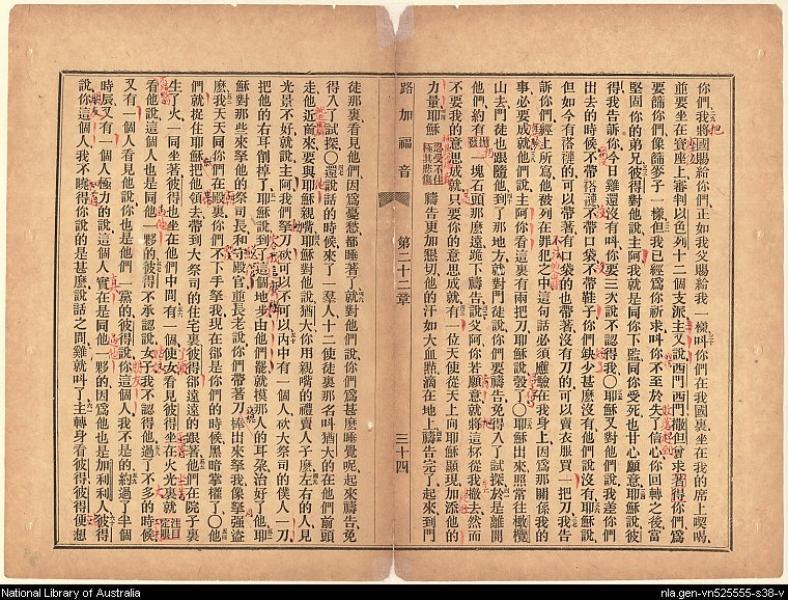 你們我將國賜給你們正如我父賜給我一樣叫你們在我國裏坐在我的席上喫喝
並要坐在寶座上審判以色列十二個支派主又說西門西門撒但曾求著得你們爲
要篩你們像篩麥子一樣但我已經爲你祈求叫你不至於失了信心你回轉之後當
堅固你的弟兄彼得對他說主阿我就是同你下監同你受死也甘心願意耶穌說彼
得我告訴你今日雞還沒有叫你要三次說不認得我〇耶穌又對他們說我差你們
出去的時候不帶褡褳不帶口袋不帶鞋子你們缺少甚麽沒有他們說沒有耶穌說
但如今有褡褳的可以帶著有口袋的也帶著沒有刀的可以賣衣服買一把刀我告
訴你們經上所寫他被列在罪犯之中這句話必須應驗在我身上因爲那關係我的
事必要成就他們說主阿你看這裏有兩把刀耶穌說彀了〇耶穌出來照常往橄欖
山去門徒也跟隨他到了那地方就對門徒說你們要禱告免得入了試探於是離開
他們約有一塊石頭那麽遠跪下禱告說父阿你若願意就將這杯從我撤去然而
不要我的意思成就只要你的意思成就有一位天使從天上向耶穌顯現加添他的
力量耶穌極其悲傷禱告更加懇切他的汗如大血點滴在地上禱告完了起來到門
路加福音 第二十二章 三十四
徒那裏看見他們因爲憂愁都睡著了就對他們說你們爲甚麽睡覺呢起來禱告免
得入了試探〇還說話的時候來了一羣人十二使徒裏那名叫猶大的在他們前頭
走他近前來要與耶穌親嘴耶穌對他說猶大你用親嘴的禮賣人子麽左右的人見
光景不好就說主阿我們拏刀砍可以不可以內中有一個人砍大祭司的僕人一刀
把他的右耳削掉了耶穌說到了這個地步由他們罷就摸那人的耳朶治好了他耶
穌對那些來拏他的祭司長和守殿官並長老說你們帶著刀棒出來拏我像拏強盜
麽我天天同你們在殿裏你們不下手拏我現在卻是你們的時候黑暗掌權了〇他
們就捉住耶穌把他領去帶到大祭司的住宅裏彼得卻遠遠的跟著他們在院子裏
生了火一同坐著彼得也坐在他們中間有一個使女看見彼得坐在火光裏就注目定眼
看他說這個人也是同他一夥的彼得不承認說女子我不認得他過了不多的時候
又有一個人看見他說你也是他們一黨的彼得說你這個人我不是的約過了半個
時辰又有一個人極力的說這個人實在是同他一夥的因爲他也是加利利人彼得
說你這個人我不曉得你說的是甚麽說話之間雞就叫了主轉身看彼得彼得便想
National Library of Australia
nla.gen-vn525555-s38-v